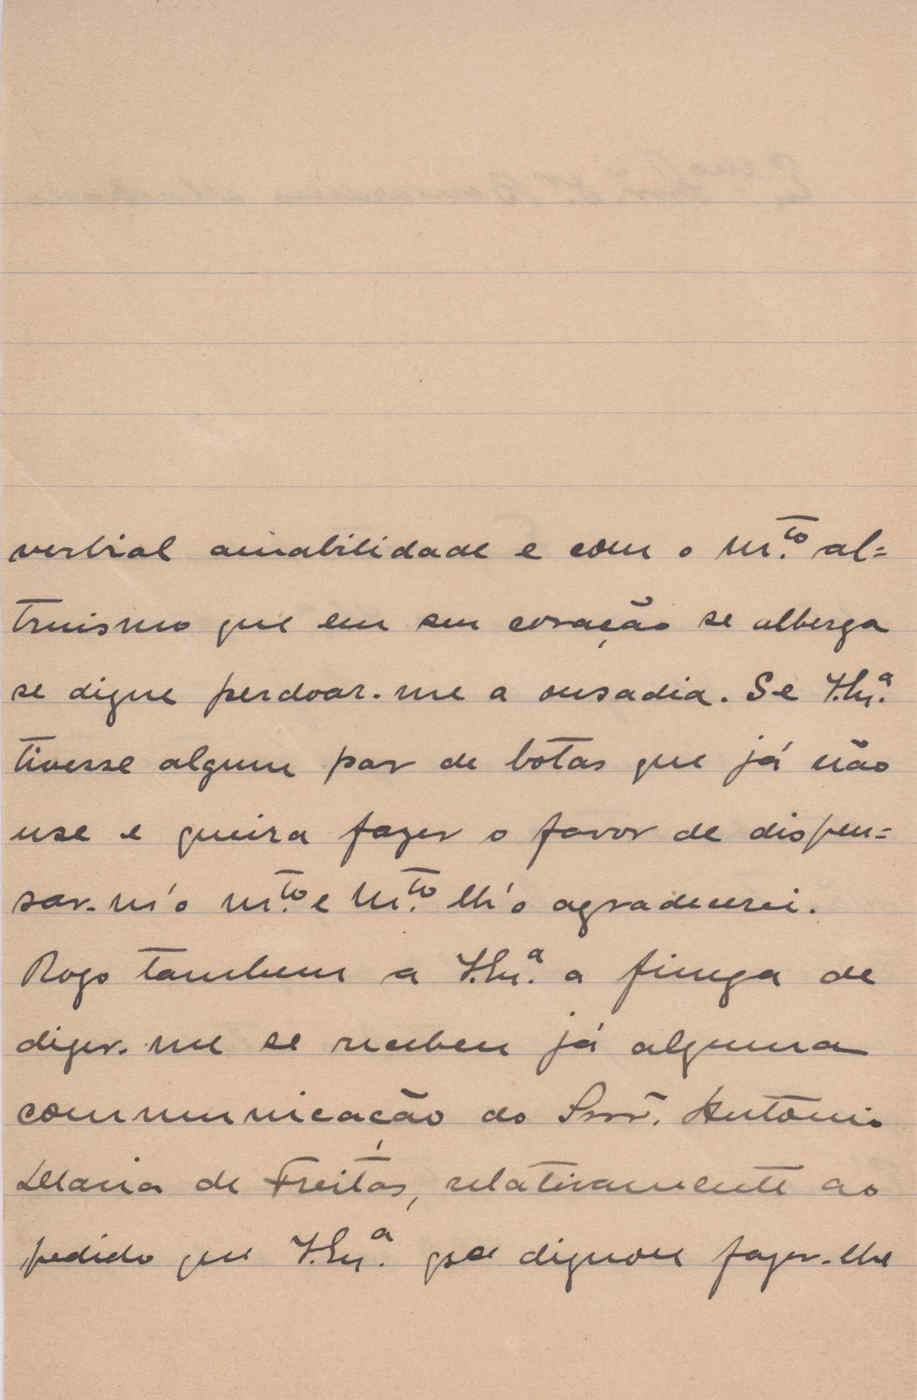 verbial amabilidade e com o m.to al=
truismo que em seu coração se alberga
se digne perdoar-me a ousadia. Se V.Ex.ª
tivesse algum par de botas que já não
use e queira fazer o favor de dispen=
sar-m'o m.to e m.to lh'o agradecerei.
Rogo tambem a V.Ex.ª a fineza de
dizer-me se recebeu já alguma
communicação do Snr. António
Maria de Freitas, relativamente ao
pedido que V.Ex.ª se dignou fazer-lhe